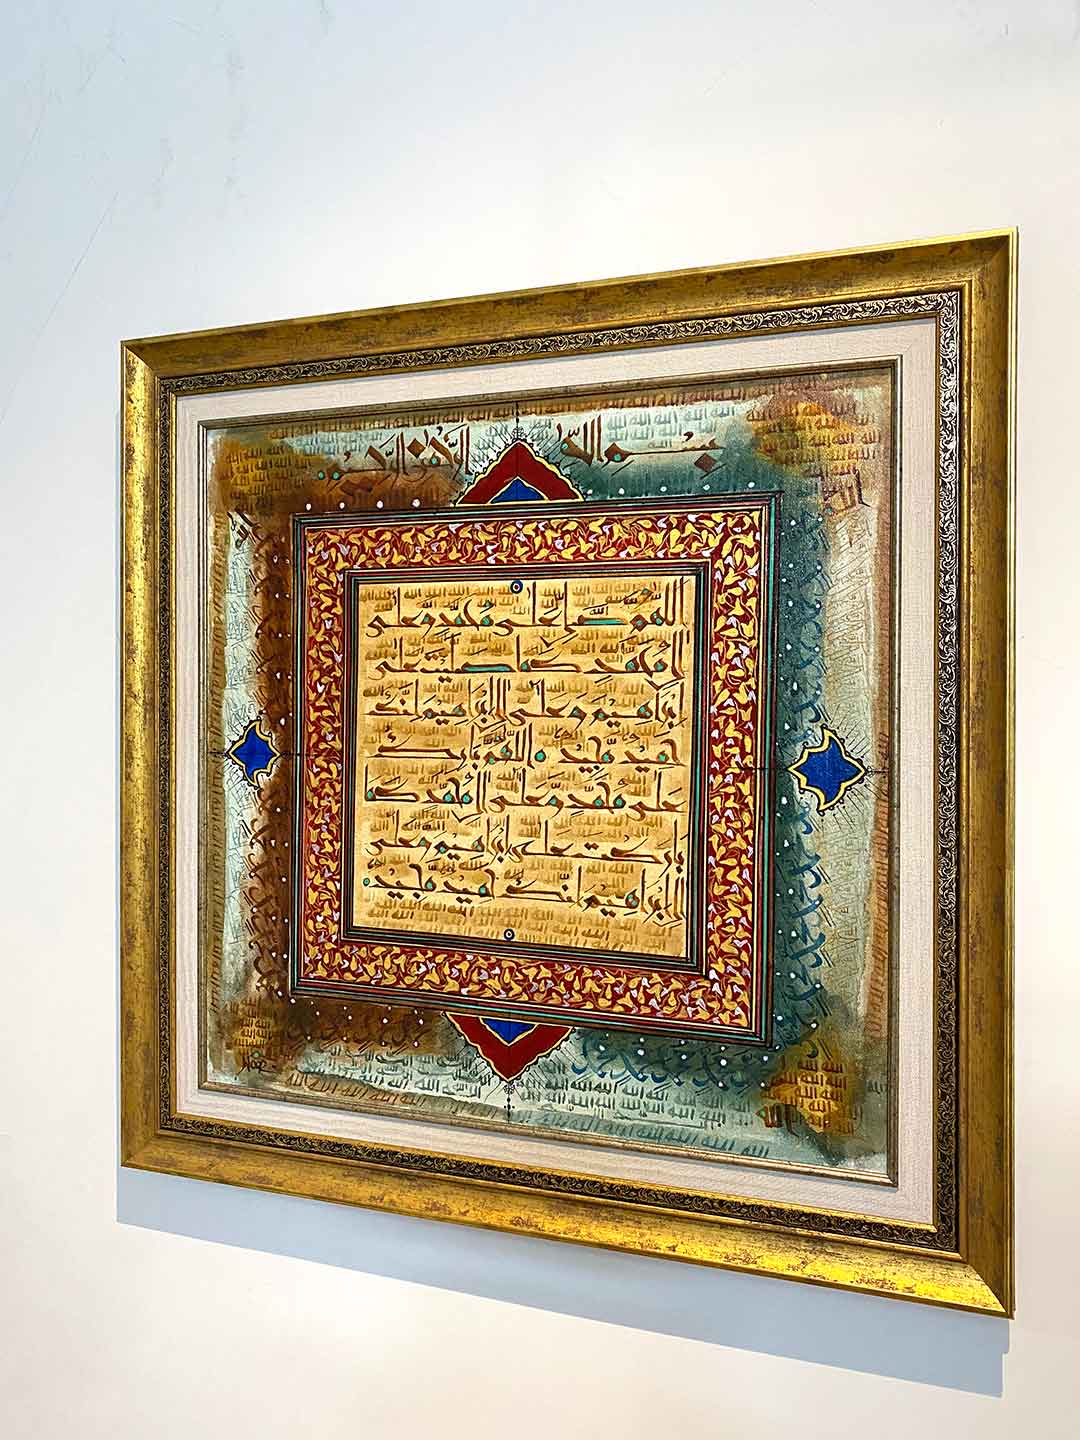 بسم الله الرحمن الرحيم
اللهم صل على محمد وعلى
آل محمد كما صليت على
إبراهيم وعلى آل إبراهيم إنك
حميد مجيد اللهم بارك
على محمد وعلى آل محمد كما
باركت على إبراهيم وعلى
آل إبراهيم إنك حميد مجيد
الله الله الله الله